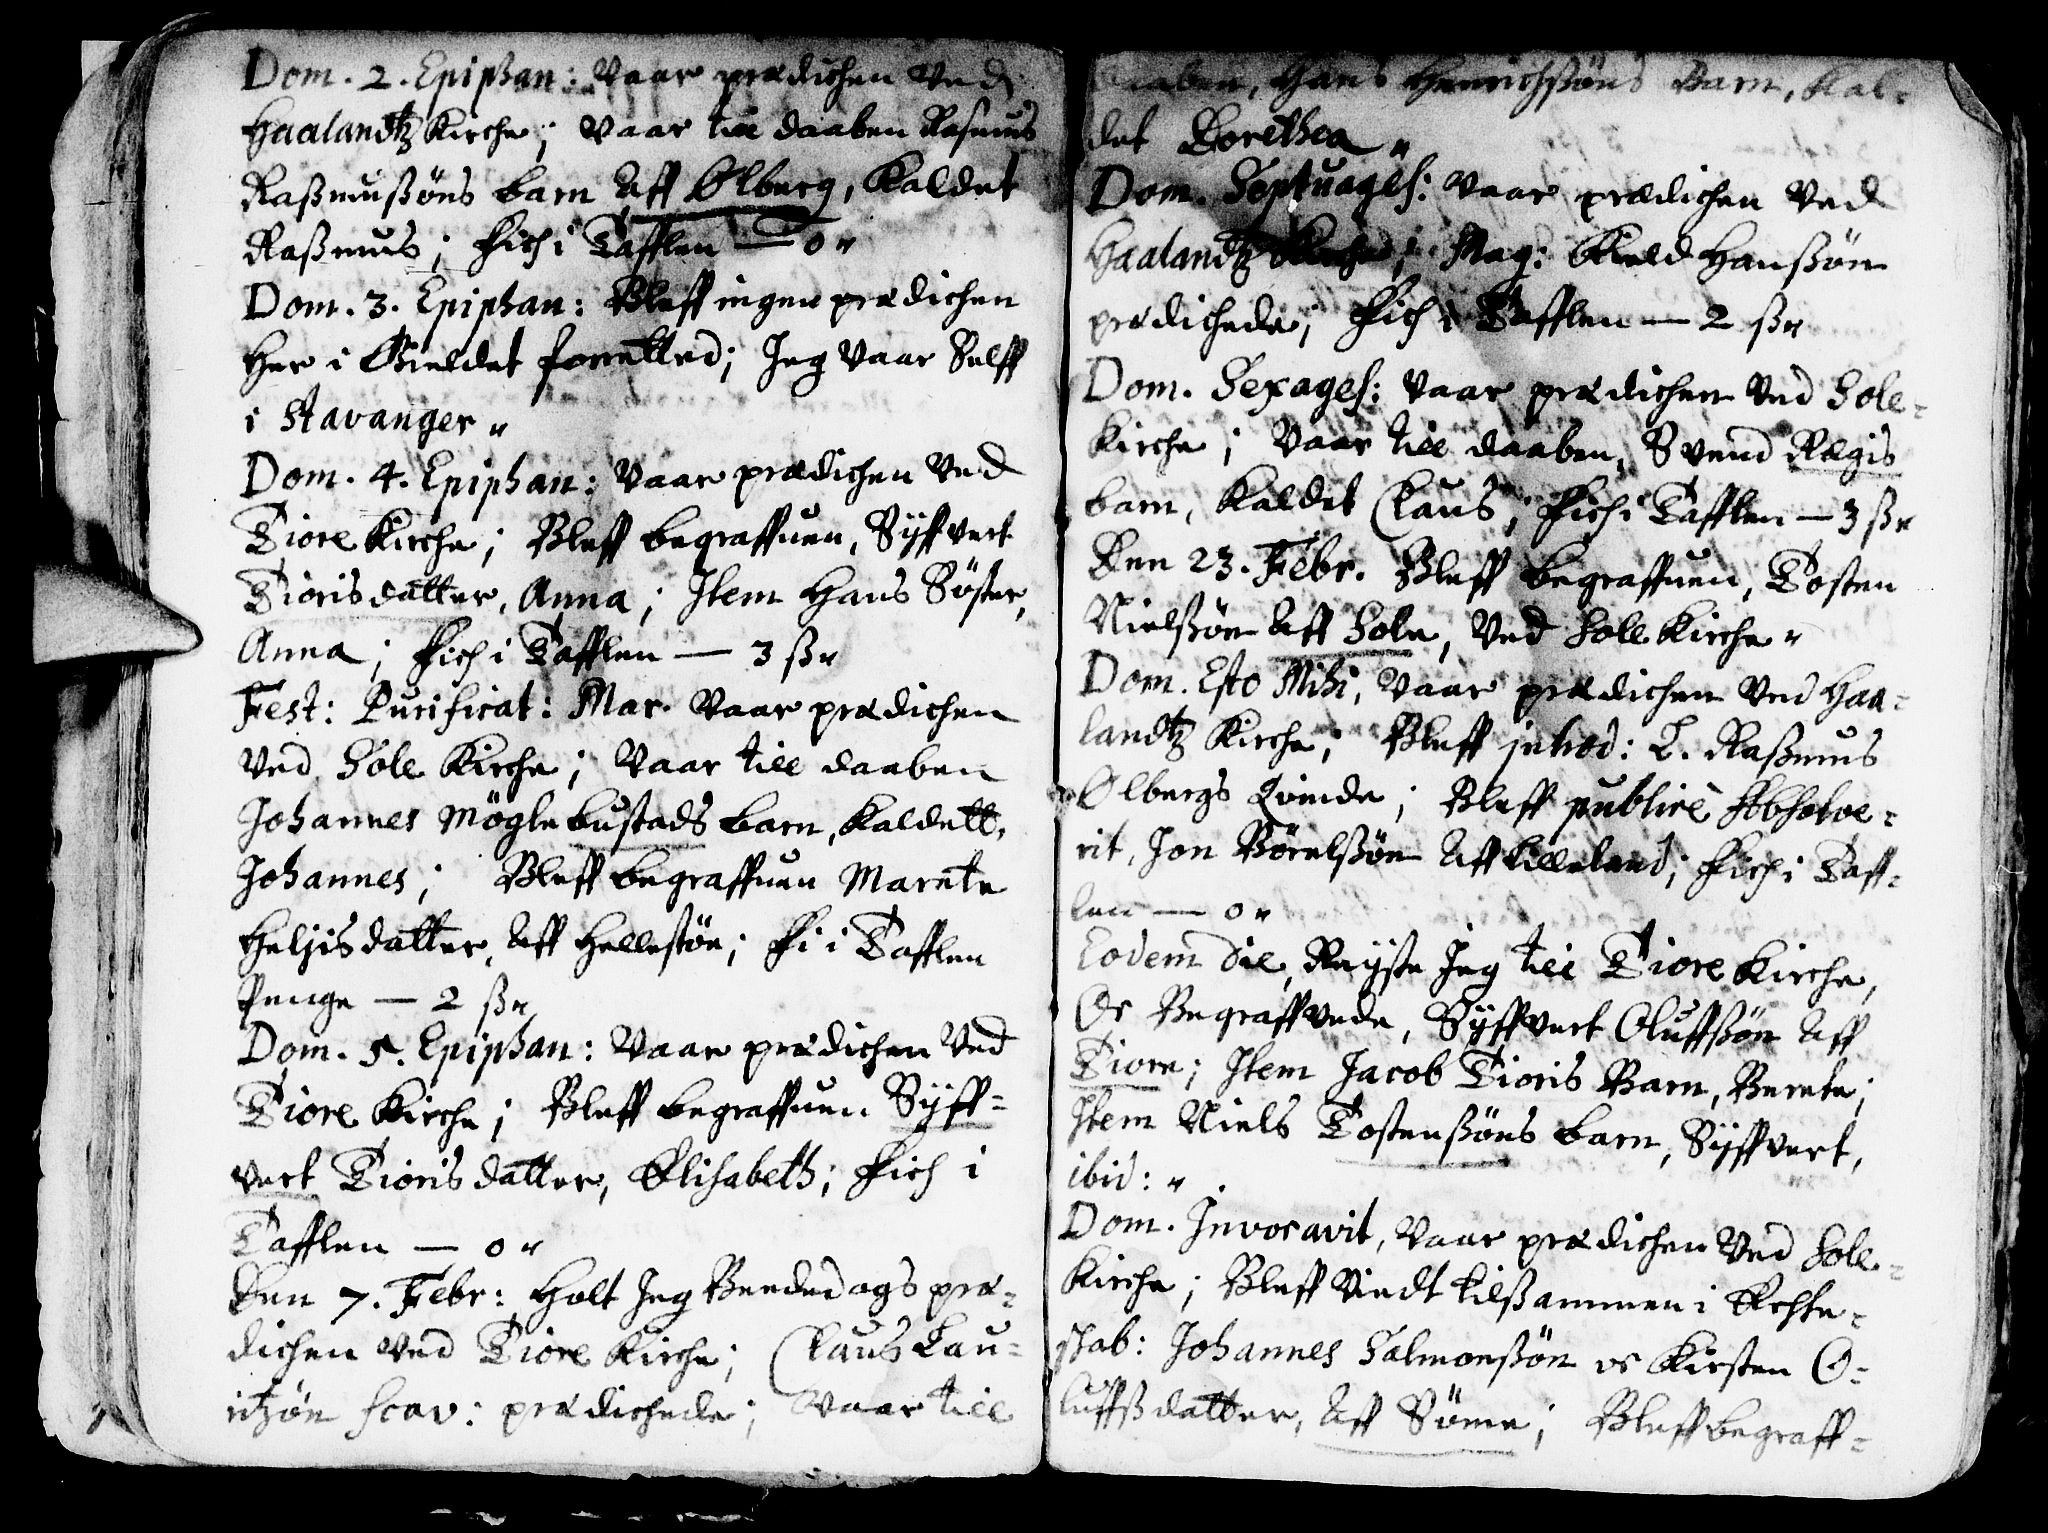 Dom. 2. Epiphan: Vaar prædichen Ved
Haalandtz Kirche; Vaar till daaben Rasmus
Raßmußøns barn Aff Ølberg, Kaldet
Raßmus; Fich i Tafflen — 0 "
Dom. 3. Epiphan: Bleff ingen prædichen
Her i Gieldet forretted; Jeg Vaar Selff
i Stavanger "
Dom. 4. Epiphan: Vaar prædichen Ved
Tiore Kirche; Bleff begraffuen, Syffvert
Tioris datter, Anna; Item Hans Søster,
Anna; Fich i Tafflen — 3 ß "
Fest: Purificat: Mar. Vaar prædichen
Ved Sole Kirche; Vaar till daaben
Johannes Møglebustads barn, Kaldett,
Johannes; Bleff begraffuen Marete
Heljis datter, Aff Hellestøe; Fi i Tafflen
Penge — 2 ß "
Dom. 5. Epiphan: Vaar prædichen Ved
Tiore Kirche; Bleff begraffuen Syff-
vert Tioris datter, Elisabeth; Fich i
Tafflen — 0 "
Den 7. Febr: Holt Jeg Beededags præ-
dichen Ved Tiore Kirche; Claus Lau-
ritzøn Scav: prædichede; Vaar till
daaben, Hans Henrichßøns Barn, Kal-
det Dorethea "
Dom. Septuages: Vaar prædichen Ved
Haalandtz Kirche; Mag: Kield Hanßøn
prædichede; Fich i Tafflen — 2 ß "
Dom. Sexages: Vaar prædichen Ved Sole-
Kirche; Vaar till daaben, Svend Rægis
barn, Kaldet Claus; Fich i Tafflen — 3 ß "
Den 23. Febr. Bleff begraffuen, Tosten
Nielßøn Aff Sole, Ved Sole Kirche "
Dom. Esto Mihi, Vaar prædichen Ved Haa-
landtz Kirche; Bleff introd: L. Raßmus
Ølbergs Qvinde; Bleff publicè Absolve-
rit, Jon Børelßøn Aff Lilleland; Fich i Taff-
len — 0 "
Eodem die, Reyste Jeg till Tiore Kirche,
Oc Begraffvede, Syffvert Oluffßøn Aff
Tiore; Item Jacob Tioris Barn, Berete;
Item Niels Tostenßøns barn, Syffvert,
ibid: "
Dom. Invocavit, Vaar prædichen Ved Sole-
Kirche; Bleff Viedt tilßammen i Echte-
skab: Johannes Salmonßøn oc Kirsten O-
luffß datter, Aff Sømme; Bleff begraff-